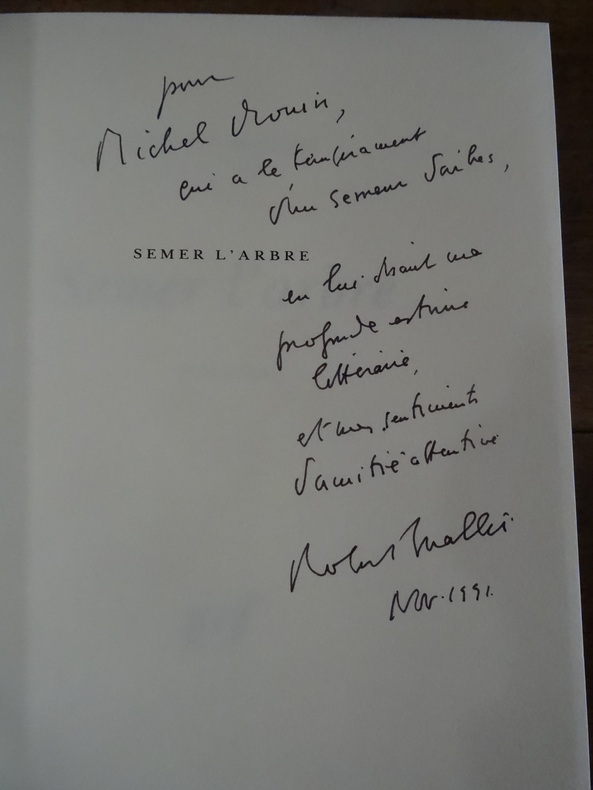 pour
Michel Drouin,
qui a le tempérament
d'un semeur d'arbres,
SEMER L'ARBRE
en lui disant ma
profonde estime
littéraire,
et mes sentiments
d'amitié attentive
Robert Mallet
Nov. 1991.